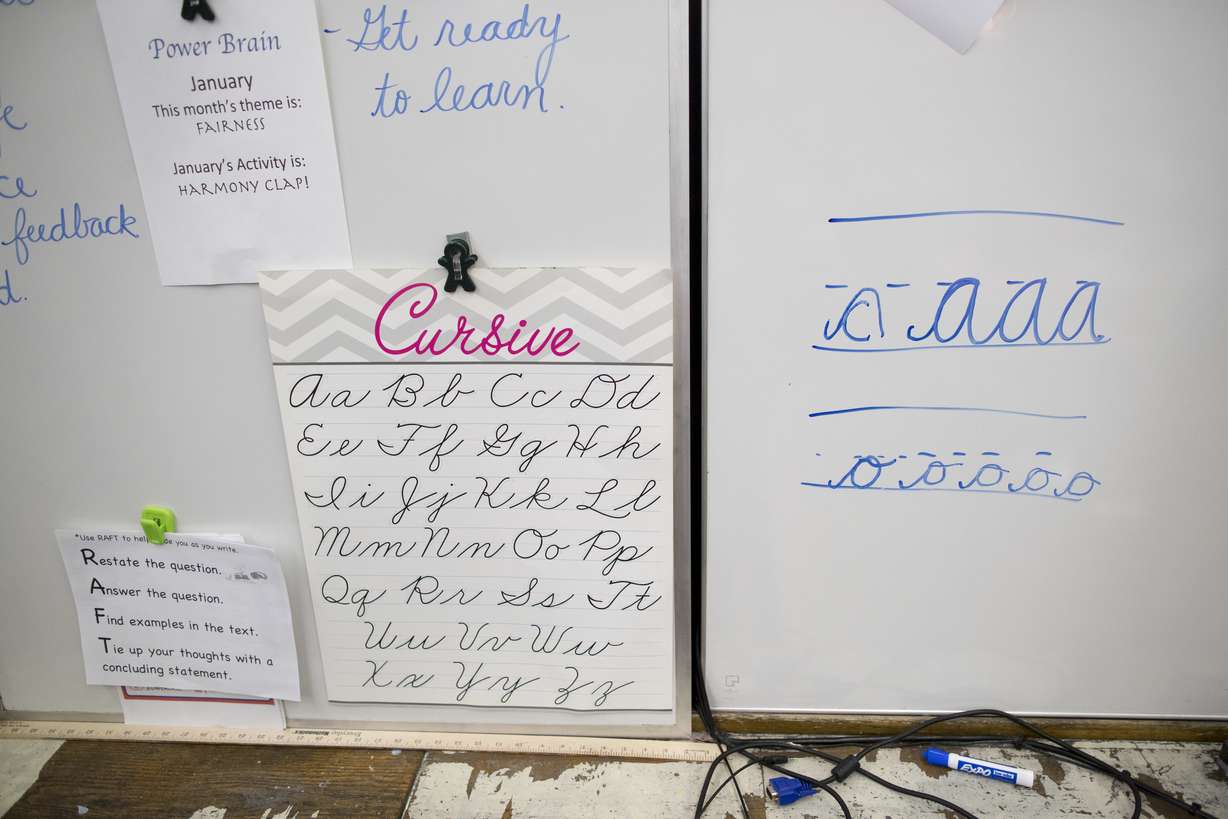 Power Brain
January
This month's theme is:
FAIRNESS
January's Activity is:
HARMONY CLAP!
- Get ready
to learn.
feedback
d.
Cursive
Aa Bb Cc Dd
Ee Ff Gg Hh
Ii Jj Kk Ll
Mm Nn Oo Pp
Qq Rr Ss Tt
Uu Vv Ww
Xx Yy Zz
*Use RAFT to help you as you write.
Restate the question.
Answer the question.
Find examples in the text.
Tie up your thoughts with a
concluding statement.
a a a a
o o o o o
EXPO